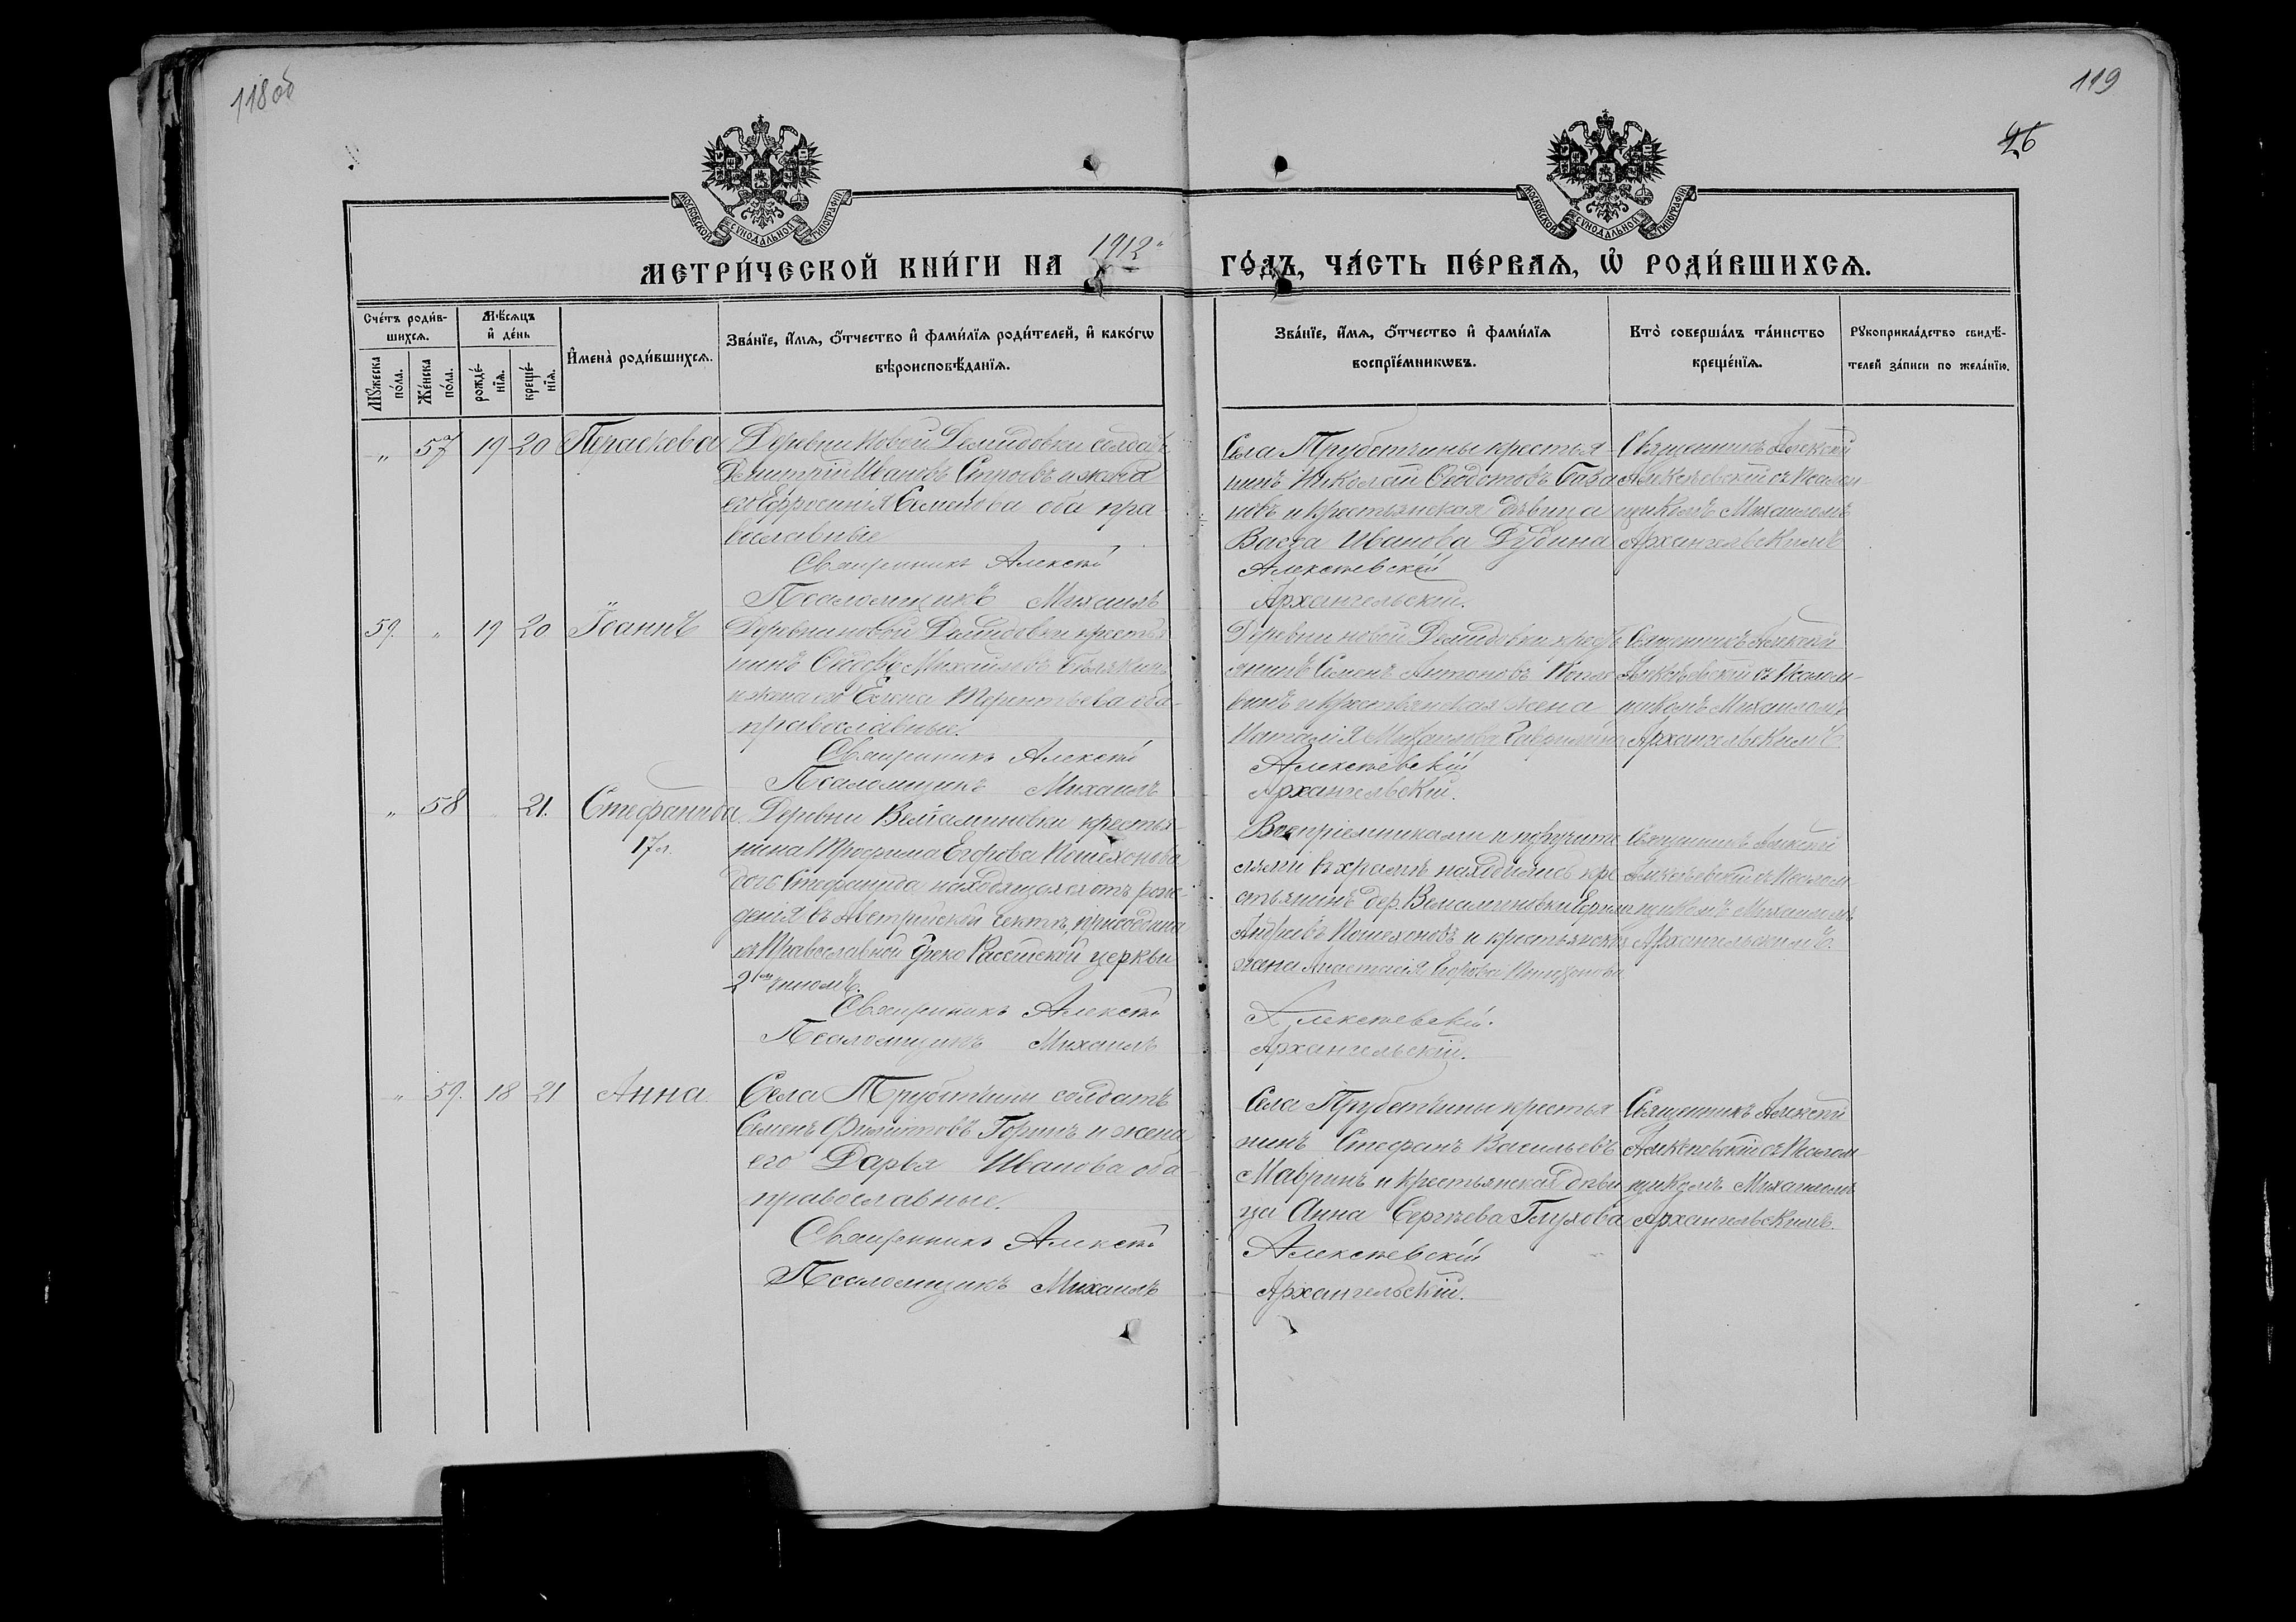 118 об
119
26
МОСКОВСКОЙ СѴНОДАЛЬНОЙ ТИПОГРАФІИ
МОСКОВСКОЙ СѴНОДАЛЬНОЙ ТИПОГРАФІИ
МЕТРИ́ЧЕСКОЙ КНИ́ГИ НА 1912 ГО́ДЪ, ЧА́СТЬ ПЕ́РВАЯ, Ѡ҆ РОДИ́ВШИХСЯ.
Сче́тъ роди́в-
шихся.
Мѣ́сяцъ
и҆ де́нь
Мꙋ́жеска
по́ла.
Же́нска
по́ла.
рожде́-
нїя.
креще́-
нїя.
И҆мена̀ роди́вшихся.
Зва́нїе, и҆́мя, ѻ҆́тчество и҆ фами́лїя роди́телей, и҆ како́гѡ
вѣроисповѣ́данїя.
Зва́нїе, и҆́мя, ѻ҆́тчество и҆ фами́лїя
воспрїе́мникѡвъ.
Кто̀ соверша́лъ та́инство
креще́нїя.
Рꙋкоприкла́дство свидѣ́-
телей за́писи по жела́нїю.
„ 57 19 20 Параскева
Деревни Новой Демидовки солдатъ
Димитрій Ивановъ Строевъ и жена
его Ефросинія Семенова оба пра
вославные
Священникъ Алексій
Псаломщикъ Михаилъ
Села Трубетчины крестья-
нинъ Николай Ѳедотовъ
новъ и крестьянская дѣвица
Васса Иванова Дудина
Алексѣевскій
Архангельскій.
Священникъ Алексій
Алексѣевскій съ псалом
щикомъ Михаиломъ
Архангельскимъ
59. „ 19 20 Іоаннъ
Деревни новой Демидовки крестья
нинъ Ѳедоръ Михайловъ
и жена его Елена Терентьева оба
православные.
Священникъ Алексій
Псаломщикъ Михаилъ
Деревни новой Демидовки кресть
янинъ Семенъ Антоновъ
и крестьянская жена
Наталія Михайлова Гаврилина
Алексѣевскій
Архангельскій.
Священникъ Алексій
Алексѣевскій съ псалом-
щикомъ Михаиломъ
Архангельскимъ.
„ 58 „ 21. Стефанида
17 л.
Деревни Вельяминовки крестья-
нина Трофима Егорова Пошехонова
дочь Стефанида находящаяся отъ рож-
денія въ Австрійской сектѣ, присоединена
къ Православной Греко Россійской церкви
2ым чиномъ.
Священникъ Алексій
Псаломщикъ Михаилъ
Воспріемниками и поручите
лями въ храмѣ находились кре
стьянинъ дер. Вельяминовки
Андреевъ Пошехоновъ и крестьянская
жена Анастасія Егорова Пошехонова
Алексѣевскій.
Архангельскій.
Священникъ Алексій
Алексѣевскій съ псалом-
щикомъ Михаиломъ
Архангельскимъ.
„ 59. 18 21 Анна.
Села Трубетчины солдатъ
Семенъ Филиповъ Горинъ и жена
его Дарья Иванова оба
православные.
Священникъ Алексій
Псаломщикъ Михаилъ
Села Трубетчины крестья
нинъ Стефанъ Васильевъ
Мавринъ и крестьянская дѣви
ца Анна Сергѣева Глухова
Алексѣевскій
Архангельскій.
Священникъ Алексій
Алексѣевскій съ псалом-
щикомъ Михаиломъ
Архангельскимъ.